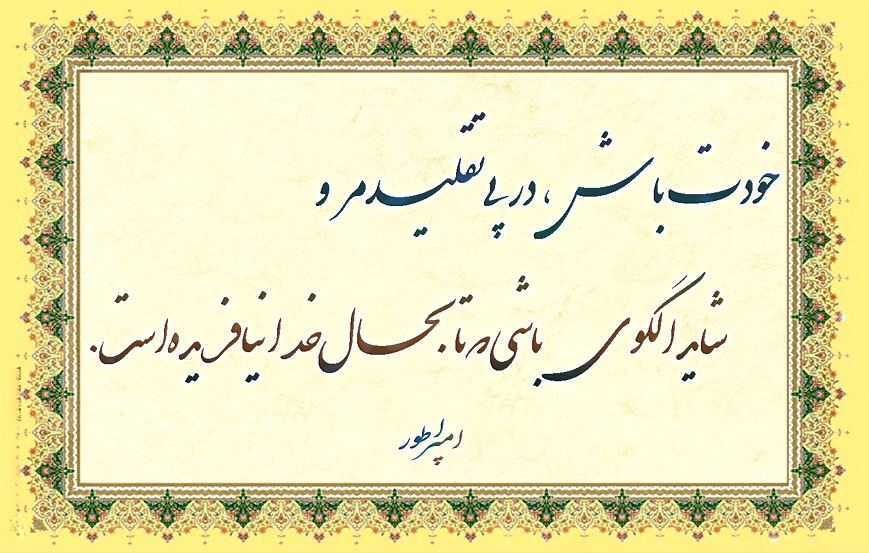 خودت باش ، در پی تقلید مرو
شاید الگوی باشی که تا بحال خدا نیافریده است.
امپراطور